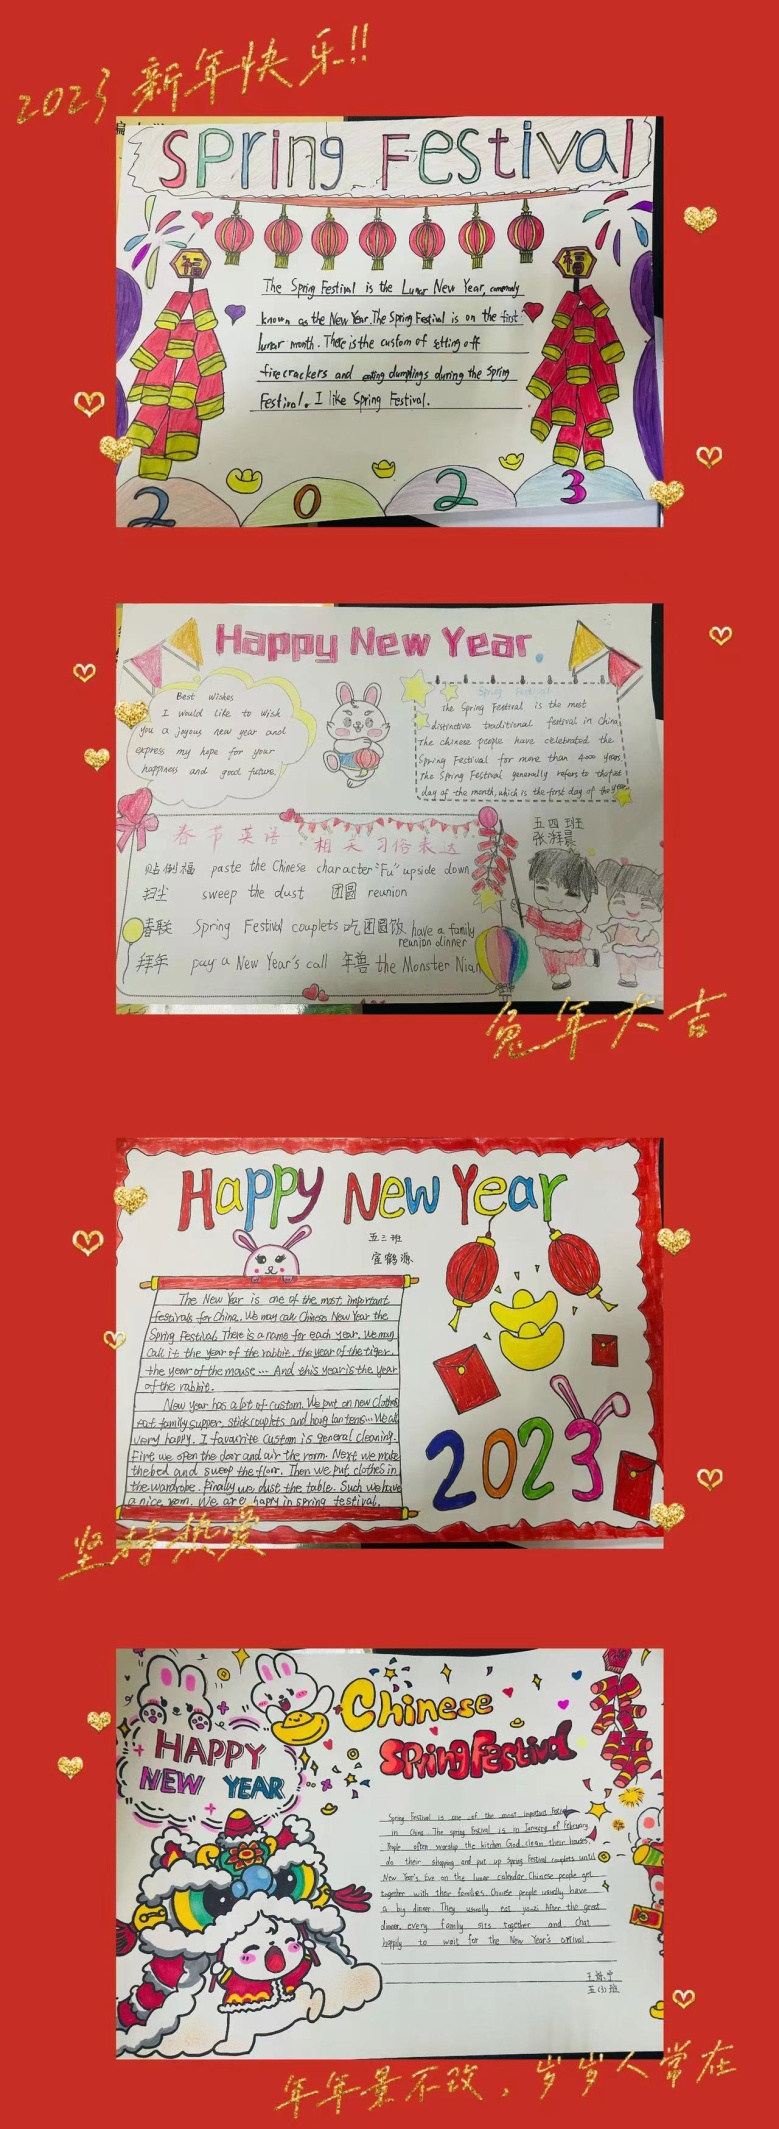 2023 新年快乐!!
Spring Festival
福
福
The Spring Festival is the Lunar New Year, commonly
known as the New Year. The Spring Festival is on the first
lunar month. There is the custom of setting off
firecrackers and eating dumplings during the Spring
Festival. I like Spring Festival.
2 0 2 3
Happy New Year
Best wishes
I would like to wish
you a joyous new year and
express my hope for your
happiness and good future.
Spring Festival
The Spring Festival is the most
distinctive traditional festival in China,
The chinese people have celebrated the
Spring Festival for more than 4000 years
The Spring Festival generally refers to the first
day of the month, which is the first day of the year
五四班
春节英语 相关习俗表达
贴倒福 paste the Chinese character "Fu" upside down
扫尘 sweep the dust 团圆 reunion
春联 Spring Festival couplets 吃团圆饭 have a family
reunion dinner
拜年 pay a New Year's call 年兽 the Monster Nian
兔年大吉
Happy New Year
五三班
宣鹤源
The New Year is one of the most important
festivals for China. We may call Chinese New Year the
Spring Festival. There is a name for each year. We may
call it the year of the rabbit, the year of the tiger,
the year of the mouse ... And this year is the year
of the rabbit.
New year has a lot of custom. We put on new clothes
eat family supper, stick couplets and hang lanterns... We all
very happy. I favourite custom is general cleaning.
First we open the door and air the room. Next we make
the bed and sweep the floor. Then we put clothes in
the wardrobe. Finally we dust the table. Such we have
a nice room. We are happy in spring festival.
2023
坚持热爱
HAPPY
NEW YEAR
Chinese
Spring Festival
Spring Festival is one of the most important Festival
in China. The spring Festival is in January of February
People often worship the kitchen God, clean their houses,
do their shopping and put up Spring Festival couplets until
New Year's Eve on the lunar calendar. Chinese people get
together with their families. Chinese people usually have
a big dinner. They usually eat jiaozi. After the great
dinner, every family sits together and chat
happily to wait for the New Year's arrival.
五(3)班
年年景不改，岁岁人常在